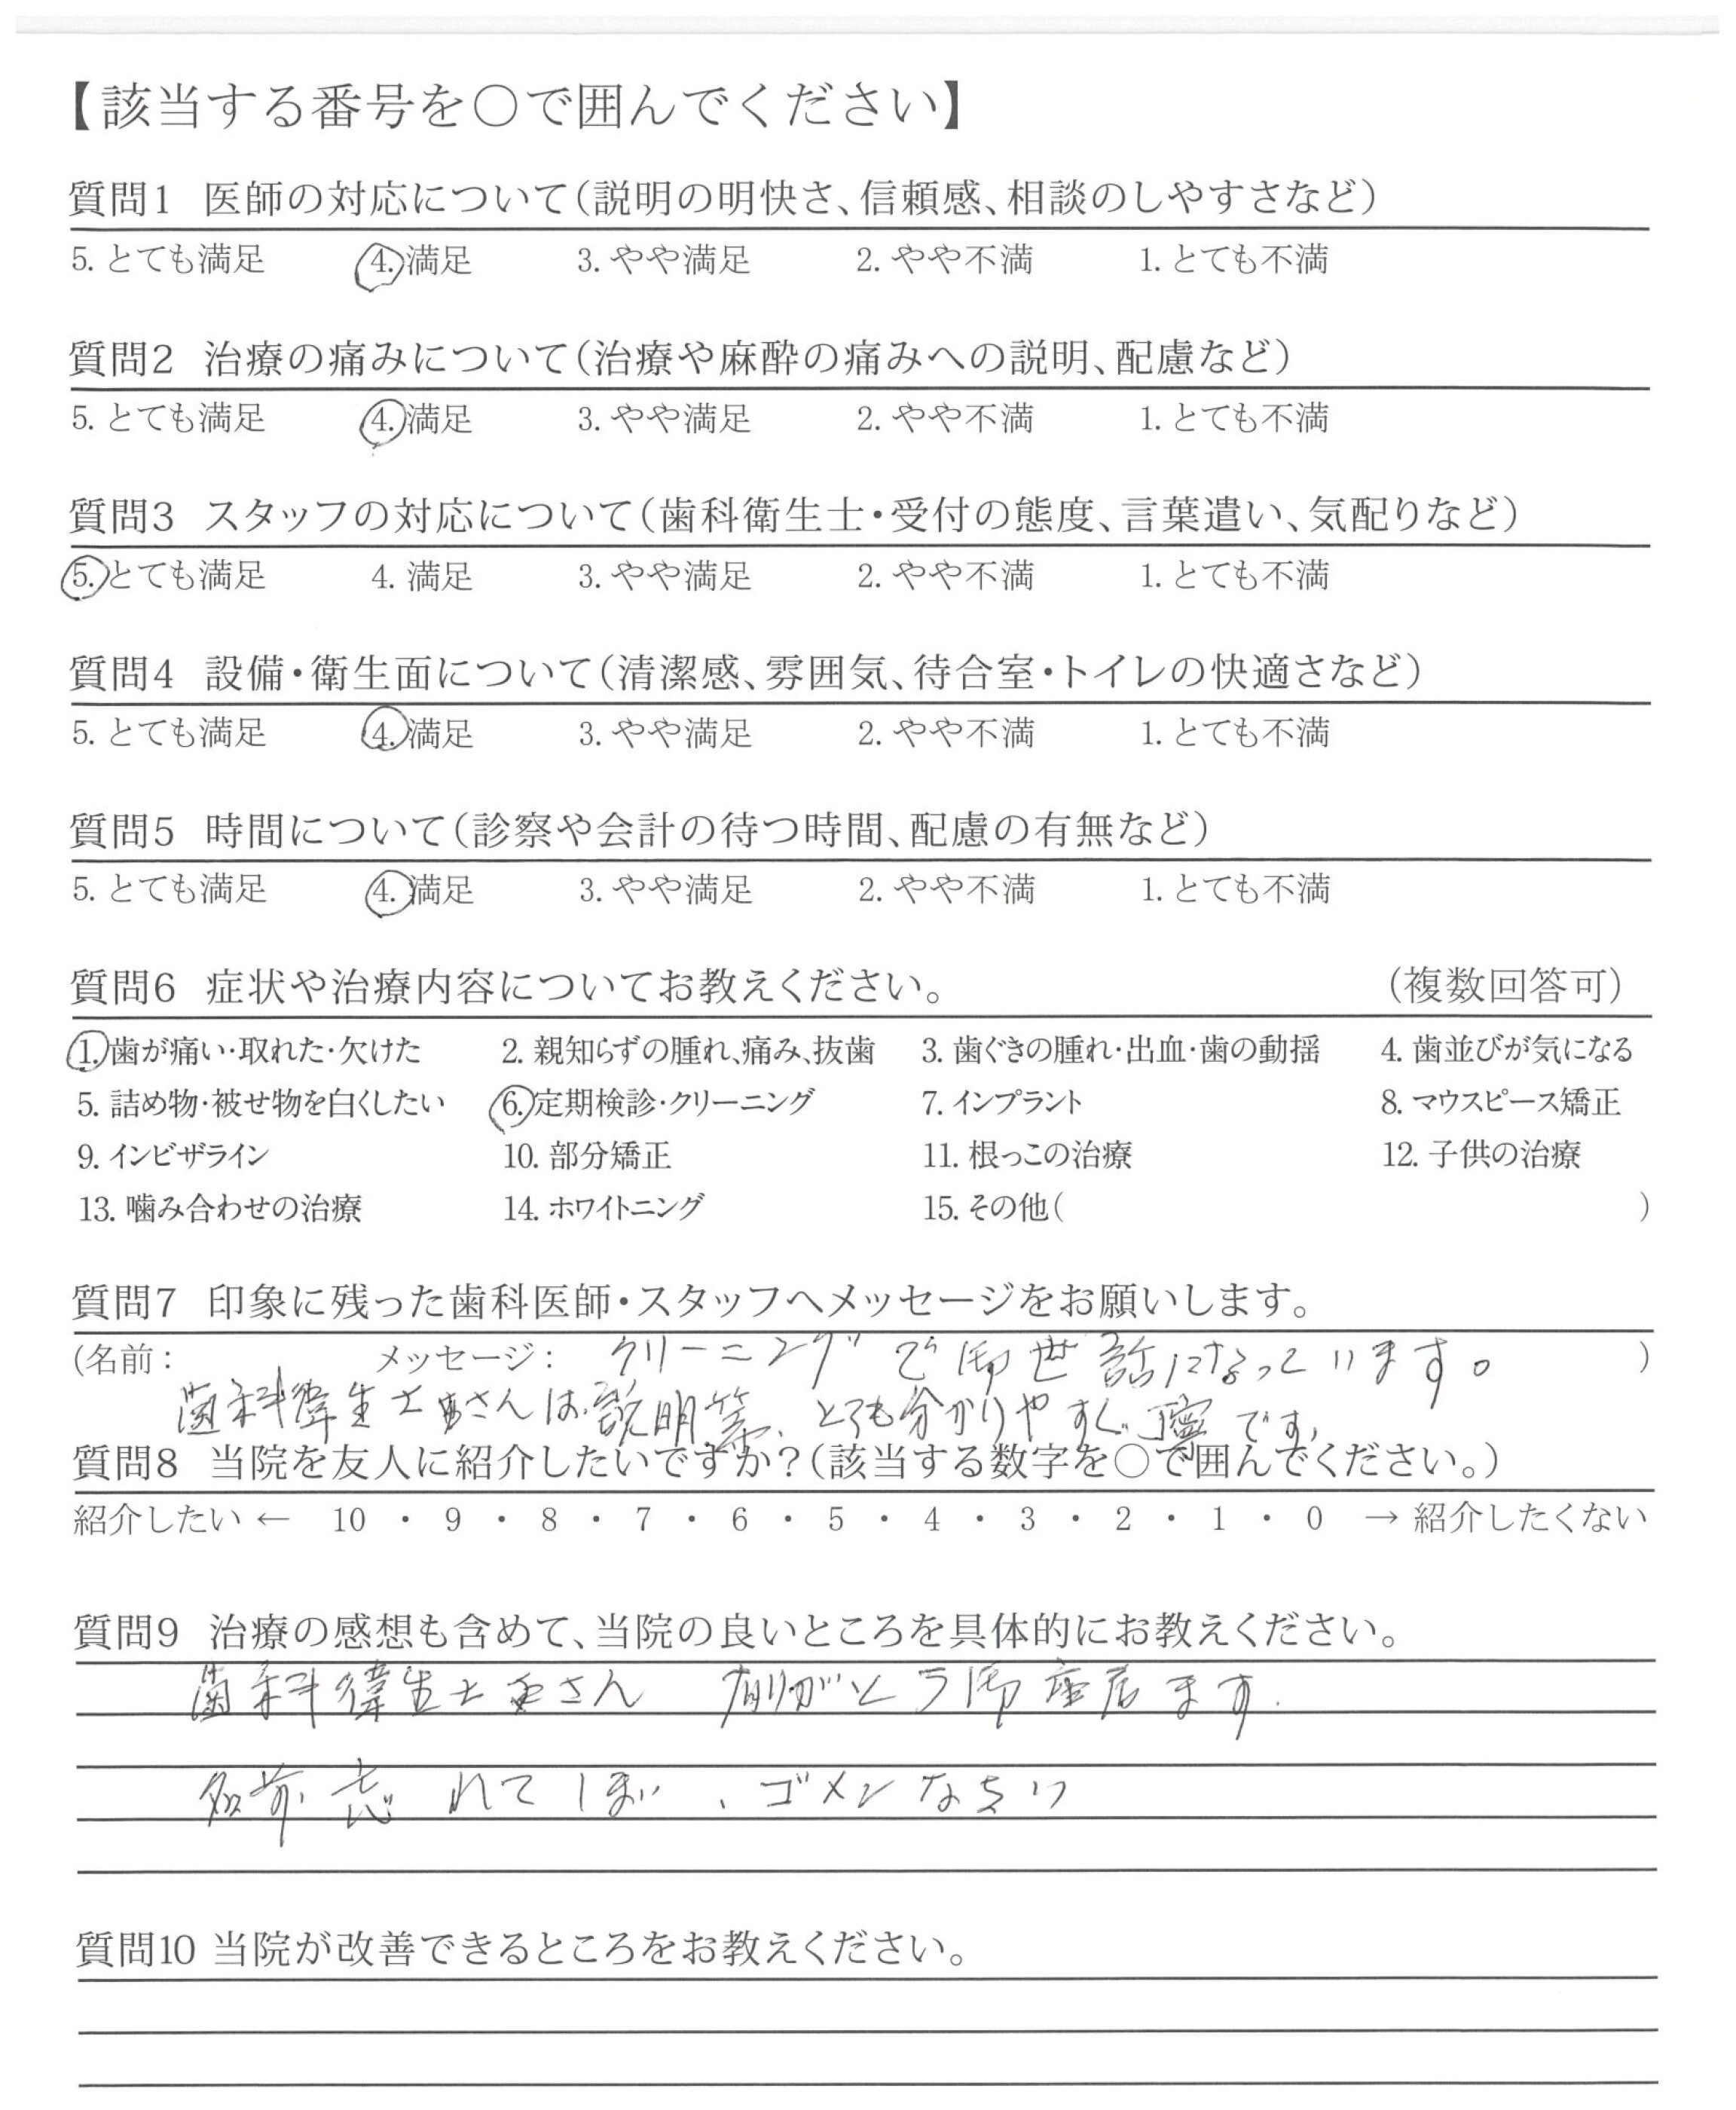 【該当する番号を○で囲んでください】
質問1 医師の対応について(説明の明快さ、信頼感、相談のしやすさなど)
5. とても満足 4. 満足 3. やや満足 2. やや不満 1. とても不満
質問2 治療の痛みについて(治療や麻酔の痛みへの説明、配慮など)
5. とても満足 4. 満足 3. やや満足 2. やや不満 1. とても不満
質問3 スタッフの対応について(歯科衛生士・受付の態度、言葉遣い、気配りなど)
5. とても満足 4. 満足 3. やや満足 2. やや不満 1. とても不満
質問4 設備・衛生面について(清潔感、雰囲気、待合室・トイレの快適さなど)
5. とても満足 4. 満足 3. やや満足 2. やや不満 1. とても不満
質問5 時間について(診察や会計の待つ時間、配慮の有無など)
5. とても満足 4. 満足 3. やや満足 2. やや不満 1. とても不満
質問6 症状や治療内容についてお教えください。 (複数回答可)
1. 歯が痛い・取れた・欠けた 2. 親知らずの腫れ、痛み、抜歯 3. 歯ぐきの腫れ・出血・歯の動揺 4. 歯並びが気になる
5. 詰め物・被せ物を白くしたい 6. 定期検診・クリーニング 7. インプラント 8. マウスピース矯正
9. インビザライン 10. 部分矯正 11. 根っこの治療 12. 子供の治療
13. 噛み合わせの治療 14. ホワイトニング 15. その他( )
質問7 印象に残った歯科医師・スタッフへメッセージをお願いします。
(名前: メッセージ: クリーニングで御世話になっています。 )
歯科衛生士さんは、説明等、とても分かりやすく、丁寧です。
質問8 当院を友人に紹介したいですか?(該当する数字を○で囲んでください。)
紹介したい ← 10 ・ 9 ・ 8 ・ 7 ・ 6 ・ 5 ・ 4 ・ 3 ・ 2 ・ 1 ・ 0 → 紹介したくない
質問9 治療の感想も含めて、当院の良いところを具体的にお教えください。
歯科衛生士さん 有りがとう御座居ます.
名前、忘れてしまい、ゴメンなさい
質問10 当院が改善できるところをお教えください。